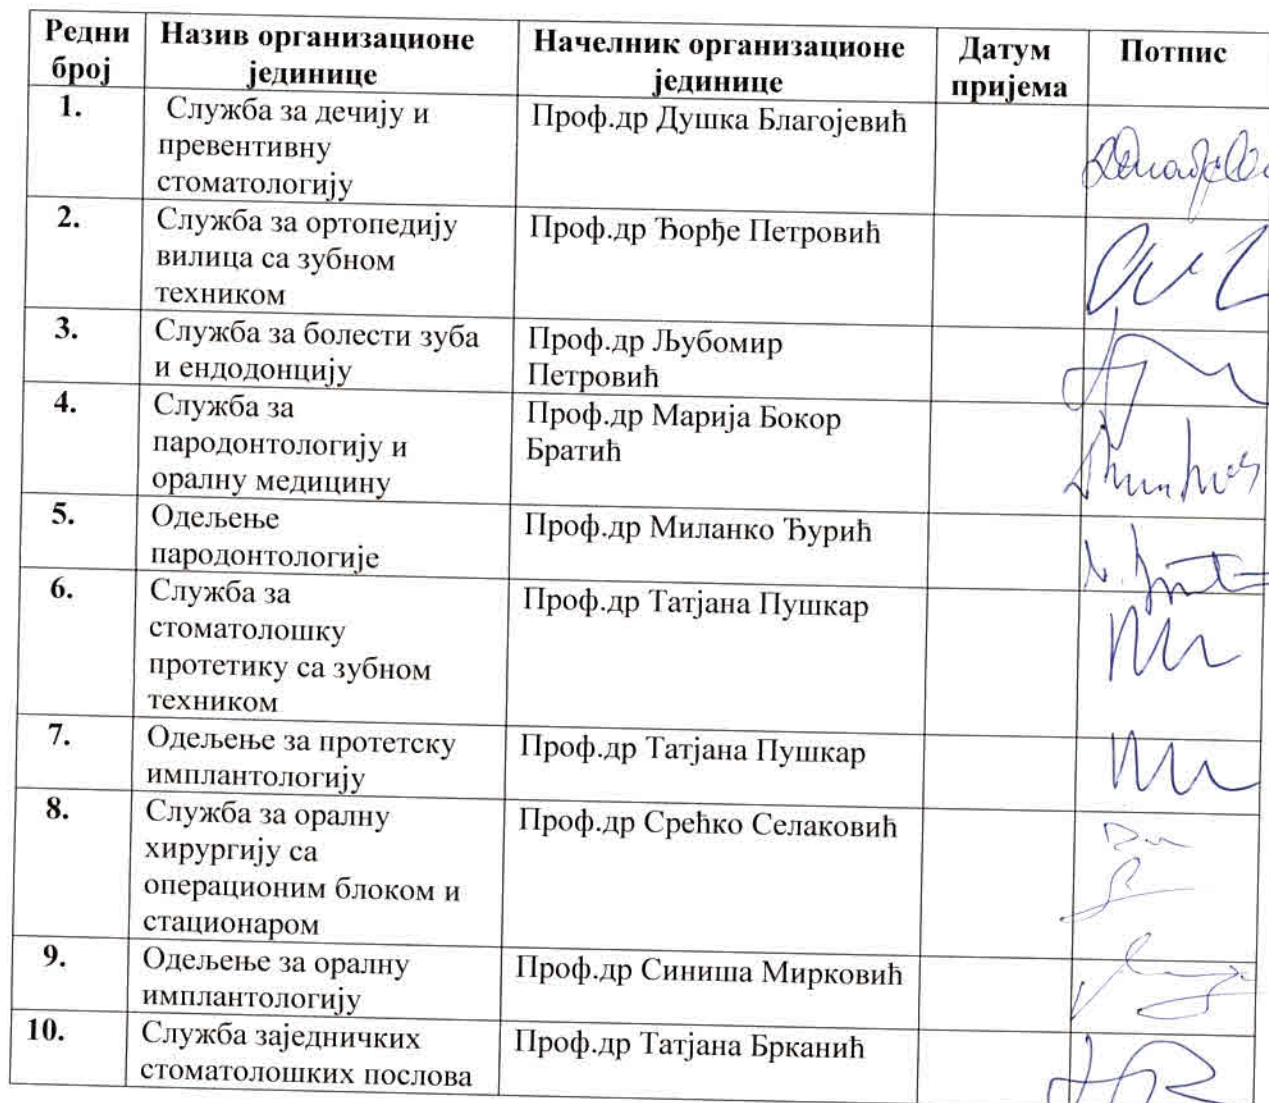 Редни број
Назив организационе јединице
Начелник организационе јединице
Датум пријема
Потпис
1.
Служба за дечију и
превентивну
стоматологију
Проф.др Душка Благојевић
2.
Служба за ортопедију
вилица са зубном
техником
Проф.др Ђорђе Петровић
3.
Служба за болести зуба
и ендодонцију
Проф.др Љубомир
Петровић
4.
Служба за
пародонтологију и
оралну медицину
Проф.др Марија Бокор
Братић
5.
Одељење
пародонтологије
Проф.др Миланко Ђурић
6.
Служба за
стоматолошку
протетику са зубном
техником
Проф.др Татјана Пушкар
7.
Одељење за протетску
имплантологију
Проф.др Татјана Пушкар
8.
Служба за оралну
хирургију са
операционим блоком и
стационаром
Проф.др Срећко Селаковић
9.
Одељење за оралну
имплантологију
Проф.др Синиша Мирковић
10.
Служба заједничких
стоматолошких послова
Проф.др Татјана Брканић